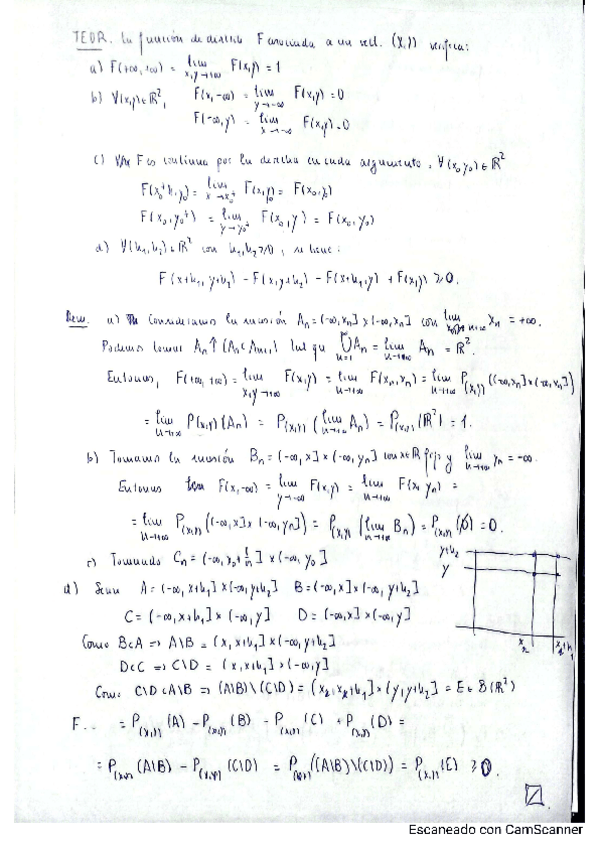 TEOR. La función de distrib F asociada a un vect. (X,Y) verifica:
a) F(+∞,+∞) = lim x,y→+∞ F(x,y) = 1
b) ∀(x,y)∈ℝ², F(x,-∞) = lim y→-∞ F(x,y) = 0
F(-∞,y) = lim x→-∞ F(x,y) = 0
c) F es continua por la derecha en cada argumento, ∀(x₀,y₀)∈ℝ²
F(x₀⁺,y₀) = lim x→x₀⁺ F(x,y₀) = F(x₀,y₀)
F(x₀,y₀⁺) = lim y→y₀⁺ F(x₀,y) = F(x₀,y₀)
d) ∀(h₁,h₂)∈ℝ² con h₁,h₂≥0, se tiene:
F(x+h₁, y+h₂) - F(x,y+h₂) - F(x+h₁,y) + F(x,y) ≥ 0.
Dem. a) Consideramos la sucesión Aₙ = (-∞,xₙ]×(-∞,xₙ] con lim n→+∞ xₙ = +∞.
Podemos tomar Aₙ↑ (Aₙ⊂Aₙ₊₁) tal que ∞⋃n=1 Aₙ = lim n→+∞ Aₙ = ℝ².
Entonces, F(+∞,+∞) = lim x,y→+∞ F(x,y) = lim n→+∞ F(xₙ,xₙ) = lim n→+∞ P(X,Y)((-∞,xₙ]×(-∞,xₙ])
= lim n→+∞ P(X,Y)(Aₙ) = P(X,Y)(lim n→+∞ Aₙ) = P(X,Y)(ℝ²) = 1.
b) Tomamos la sucesión Bₙ = (-∞,x]×(-∞,yₙ] con x∈ℝ fijo y lim n→+∞ yₙ = -∞.
Entonces F(x,-∞) = lim y→-∞ F(x,y) = lim n→+∞ F(x,yₙ) =
= lim n→+∞ P(X,Y)((-∞,x]×(-∞,yₙ]) = P(X,Y)(lim n→+∞ Bₙ) = P(X,Y)(∅) = 0.
c) Tomando Cₙ = (-∞,x₀+1/n]×(-∞,y₀]
y+h₂
y
d) Sean A = (-∞,x+h₁]×(-∞,y+h₂] B = (-∞,x]×(-∞,y+h₂]
C = (-∞,x+h₁]×(-∞,y] D = (-∞,x]×(-∞,y]
Como B⊂A ⇒ A\B = (x,x+h₁]×(-∞,y+h₂]
D⊂C ⇒ C\D = (x,x+h₁]×(-∞,y]
Como C\D⊂A\B ⇒ (A\B)\(C\D) = (x,x+h₁]×(y,y+h₂] = E∈B(ℝ²)
F... = P(X,Y)(A) - P(X,Y)(B) - P(X,Y)(C) + P(X,Y)(D) =
= P(X,Y)(A\B) - P(X,Y)(C\D) = P(X,Y)((A\B)\(C\D)) = P(X,Y)(E) ≥ 0.
Escaneado con CamScanner